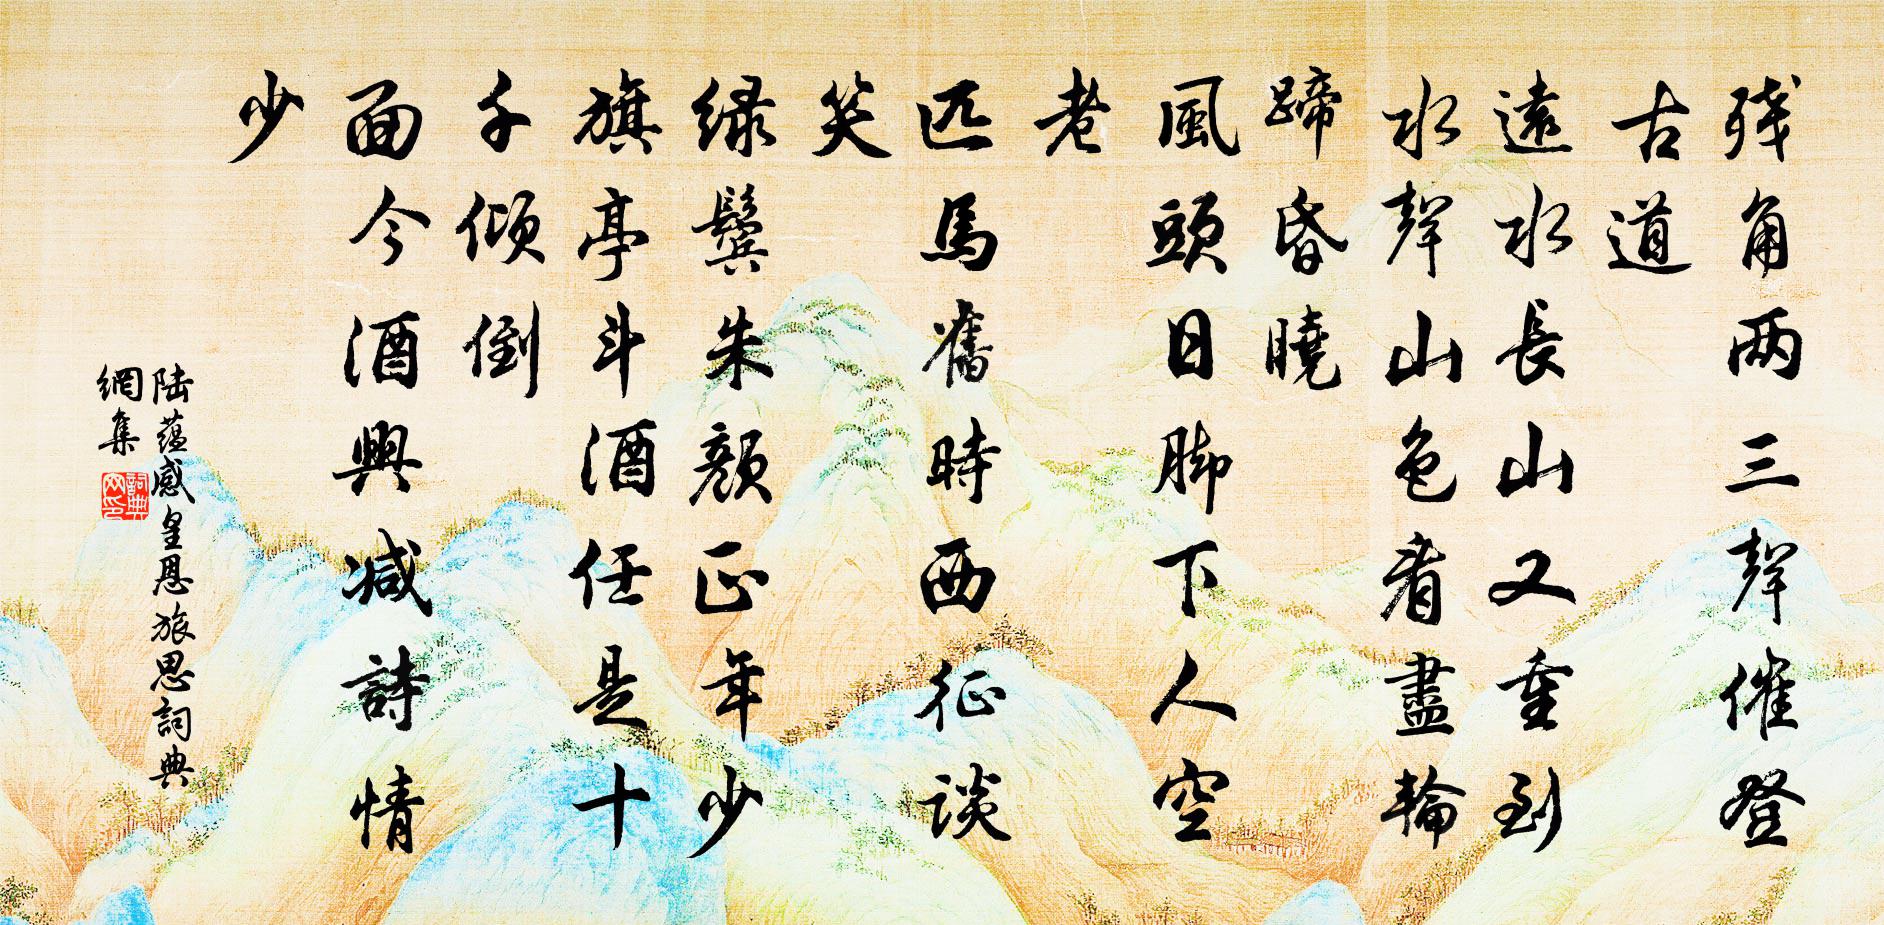 残角两三聲催登
古道
遠水長山又重到
水聲山色看盡輪
蹄昏曉
風頭日脚下人空
老
匹馬舊時西征談
笑
绿鬓朱颜正年少
旗亭斗酒任是十
千倾倒
面今酒興减詩情
少
陆蕴感皇恩旅思詞典
網集
詞典网印